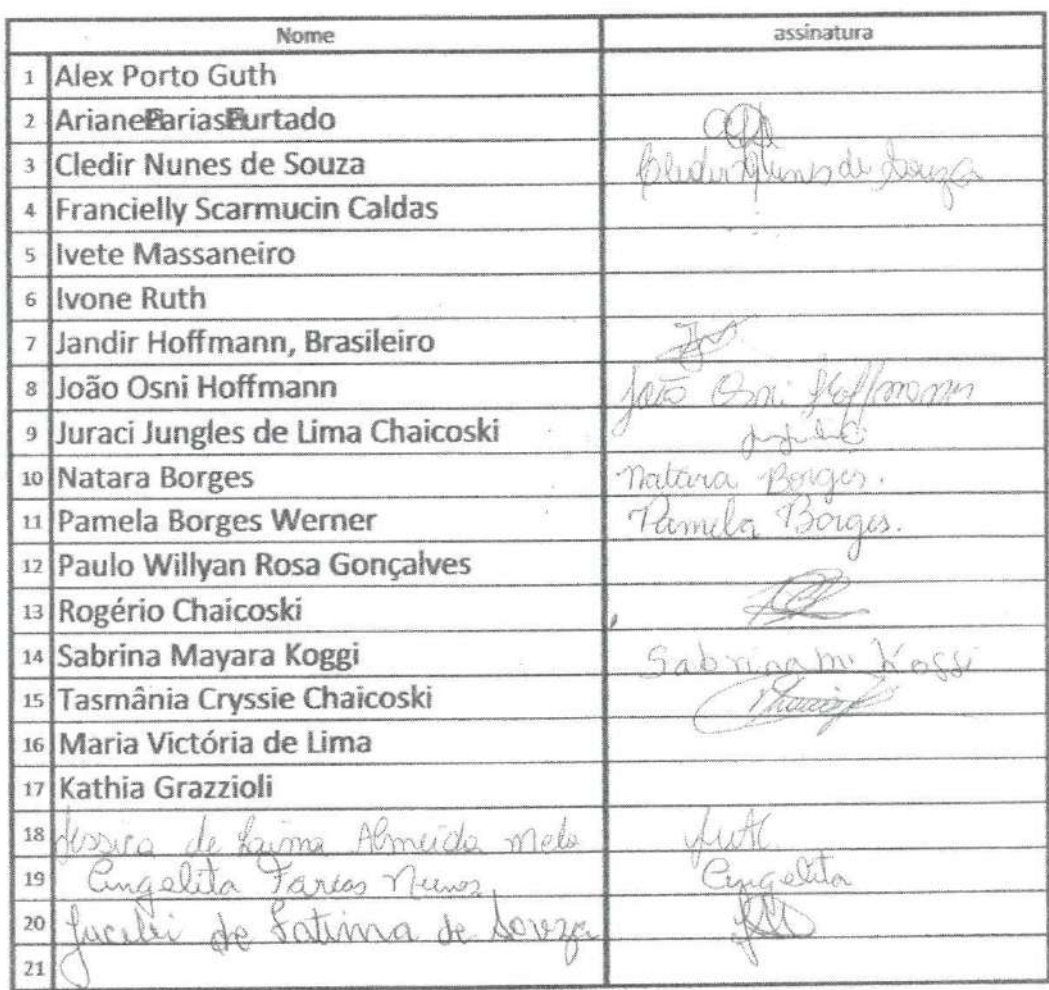 Nome assinatura
1 Alex Porto Guth
2 Ariane Farias Furtado
3 Cledir Nunes de Souza Cledir Nunes de Souza
4 Francielly Scarmucin Caldas
5 Ivete Massaneiro
6 Ivone Ruth
7 Jandir Hoffmann, Brasileiro
8 João Osni Hoffmann João Osni Hoffmann
9 Juraci Jungles de Lima Chaicoski
10 Natara Borges Natara Borges.
11 Pamela Borges Werner Pamela Borges.
12 Paulo Willyan Rosa Gonçalves
13 Rogério Chaicoski
14 Sabrina Mayara Koggi Sabrina M. Koggi
15 Tasmânia Cryssie Chaicoski
16 Maria Victória de Lima
17 Kathia Grazzioli
18 Jessica de Almeida Melo
19 Angelita Farias Nunes Angelita
20 de Fatima de Souza
21